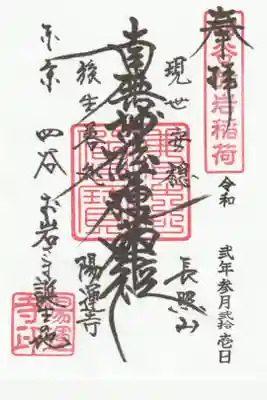 奉拝
谷
岩稲荷
令和
弐年参月弐拾壱日
現世安穏
長照山
南無妙法蓮華経
陽運寺
後生善処
東京 四谷 お岩さま誕生地
陽運寺印